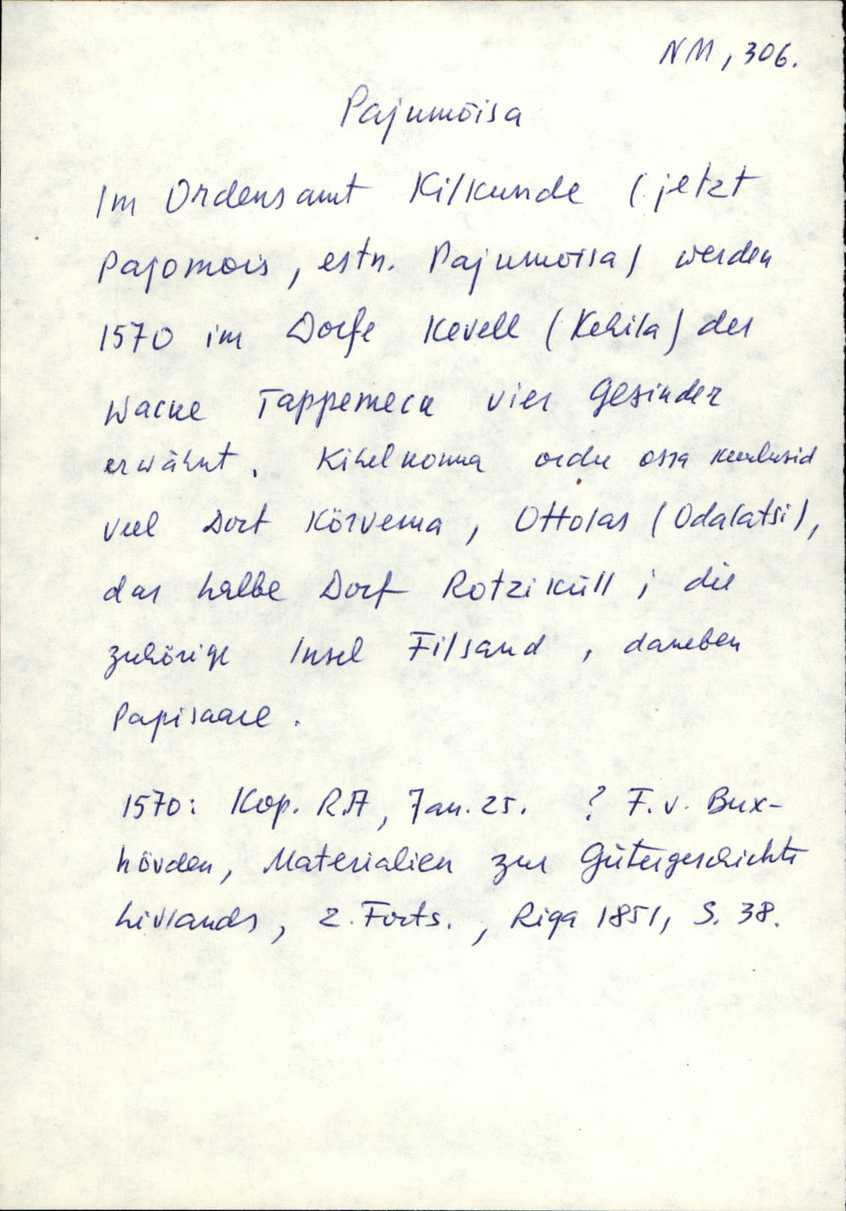 NM, 306.
Pajumõisa
Im Ordensamt Kilkunde (jetzt
Pajomois, estn. Pajumoisa) werden
1570 im Dorfe Kevell (Kehila) der
Wacke Tappemeck vier Gesinder
erwähnt. Kihelkonna ordu ossa kuulusid
veel Dorf Körvema, Ottolas (Odalatsi),
das halbe Dorf Rotziküll; die
zuhörige Insel Filsand, daneben
Papisaare.
1570: Kop. RA, Jan. 25. ? F. v. Bux-
hövden, Materialien zur Gütergeschichte
Livlands, 2. Forts., Riga 1851, S. 38.